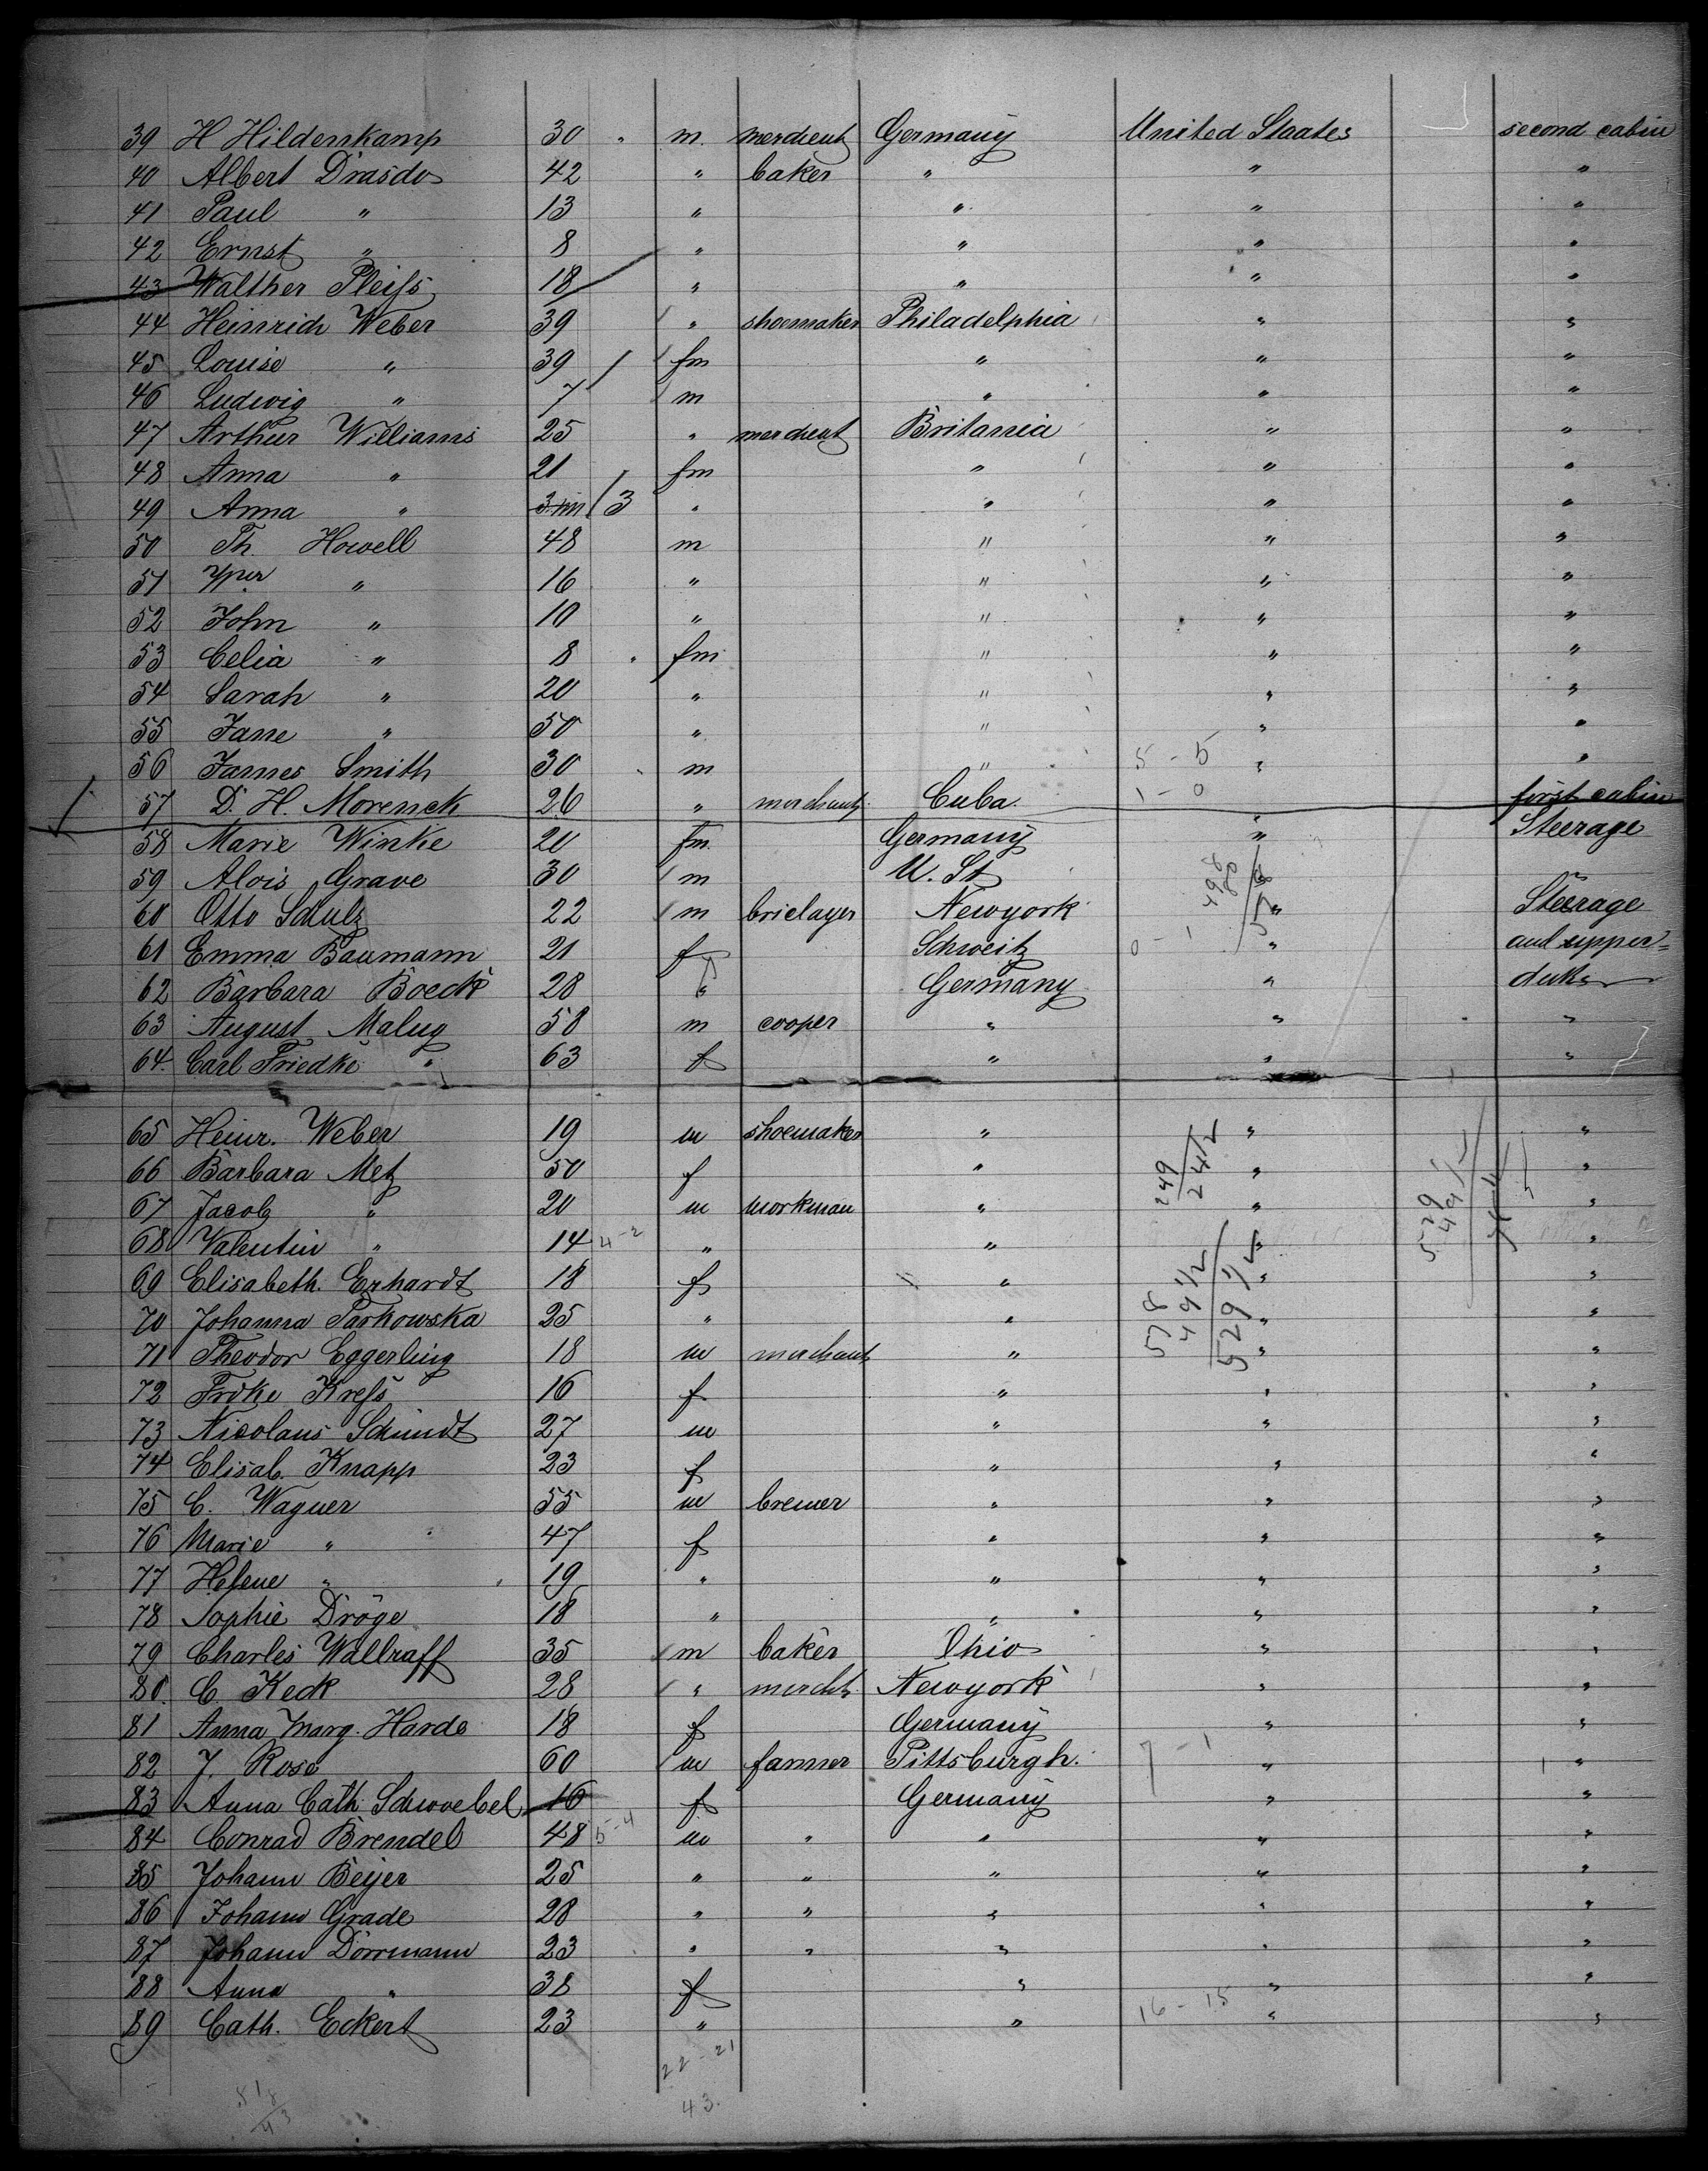 39 H Hildenkamp 30 " m. merchent Germany United Staates second cabin
40 Albert Drasdo 42 " baker " " "
41 Paul " 13 " " " "
42 Ernst " 8 " " " "
43 Walther Pleiſs 18 " " " "
44 Heinrich Weber 39 " shoemaker Philadelphia " "
45 Louise " 39 fm " " "
46 Ludwig " 7 m " " "
47 Arthur Williams 25 " merchent Britania " "
48 Anna " 21 fm " " "
49 Anna " 3 m 3 " " " "
50 Th. Howell 48 m " " "
51 " 16 " " " "
52 John " 10 " " " "
53 Celia " 8 fm " " "
54 Sarah " 20 " " " "
55 Jane " 50 " " " "
56 James Smith 30 m " 5 - 5 " "
57 D. H. Morenck 26 " merchant Cuba 1 - 0 first cabin
58 Marie Winke 20 fm. Germany " Steerage
59 Alois Grave 30 m U. St "
60 Otto Schulz 22 m briclayer Newyork " Steerage
61 Emma Baumann 21 f Schweitz 0 - 1 " and upper=
62 Barbara Boeck 28 " Germany " deck
63 August Malug 58 m cooper " " "
64. Carl Friedke " 63 f " " "
65 Heinr. Weber 19 m shoemaker " " "
66 Barbara Metz 50 f " " "
67 Jacob " 20 m workman " " "
68 Valentin " 14 4-2 " " " "
69 Elisabeth. Erhardt 18 f " " "
70 Johanna Parkowska 25 " " " "
71 Theodor Eggerling 18 m merchant " " "
72 Frdke Kreſs 16 f " " "
73 Nicolaus Schmidt 27 m " " "
74 Elisab. Knapp 23 f " " "
75 C. Wagner 55 m brewer " " "
76 Marie " 47 f " " "
77 Helene " 19 " " " "
78 Sophie Dröge 18 " " " "
79 Charles Wallraff 35 m baker Ohio " "
80. C. Keck 28 " mercht. Newyork " "
81 Anna Marg. Harde 18 f Germany " "
82 J. Rose 60 m farmer Pittsburgh. 7 - 1 " "
83 Anna Cath. Schwoebel 16 f Germany " "
84 Conrad Brendel 48 5-4 m " " " "
85 Johann Beyer 25 " " " " "
86 Johann Grade 28 " " " " "
87 Johann Dörrmann 23 " " " " "
88 Anna " 38 f " " "
89 Cath. Eckert 23 " " 16 - 15 " "
22 - 21
43.
249
578
49 1/2
529 1/2
529